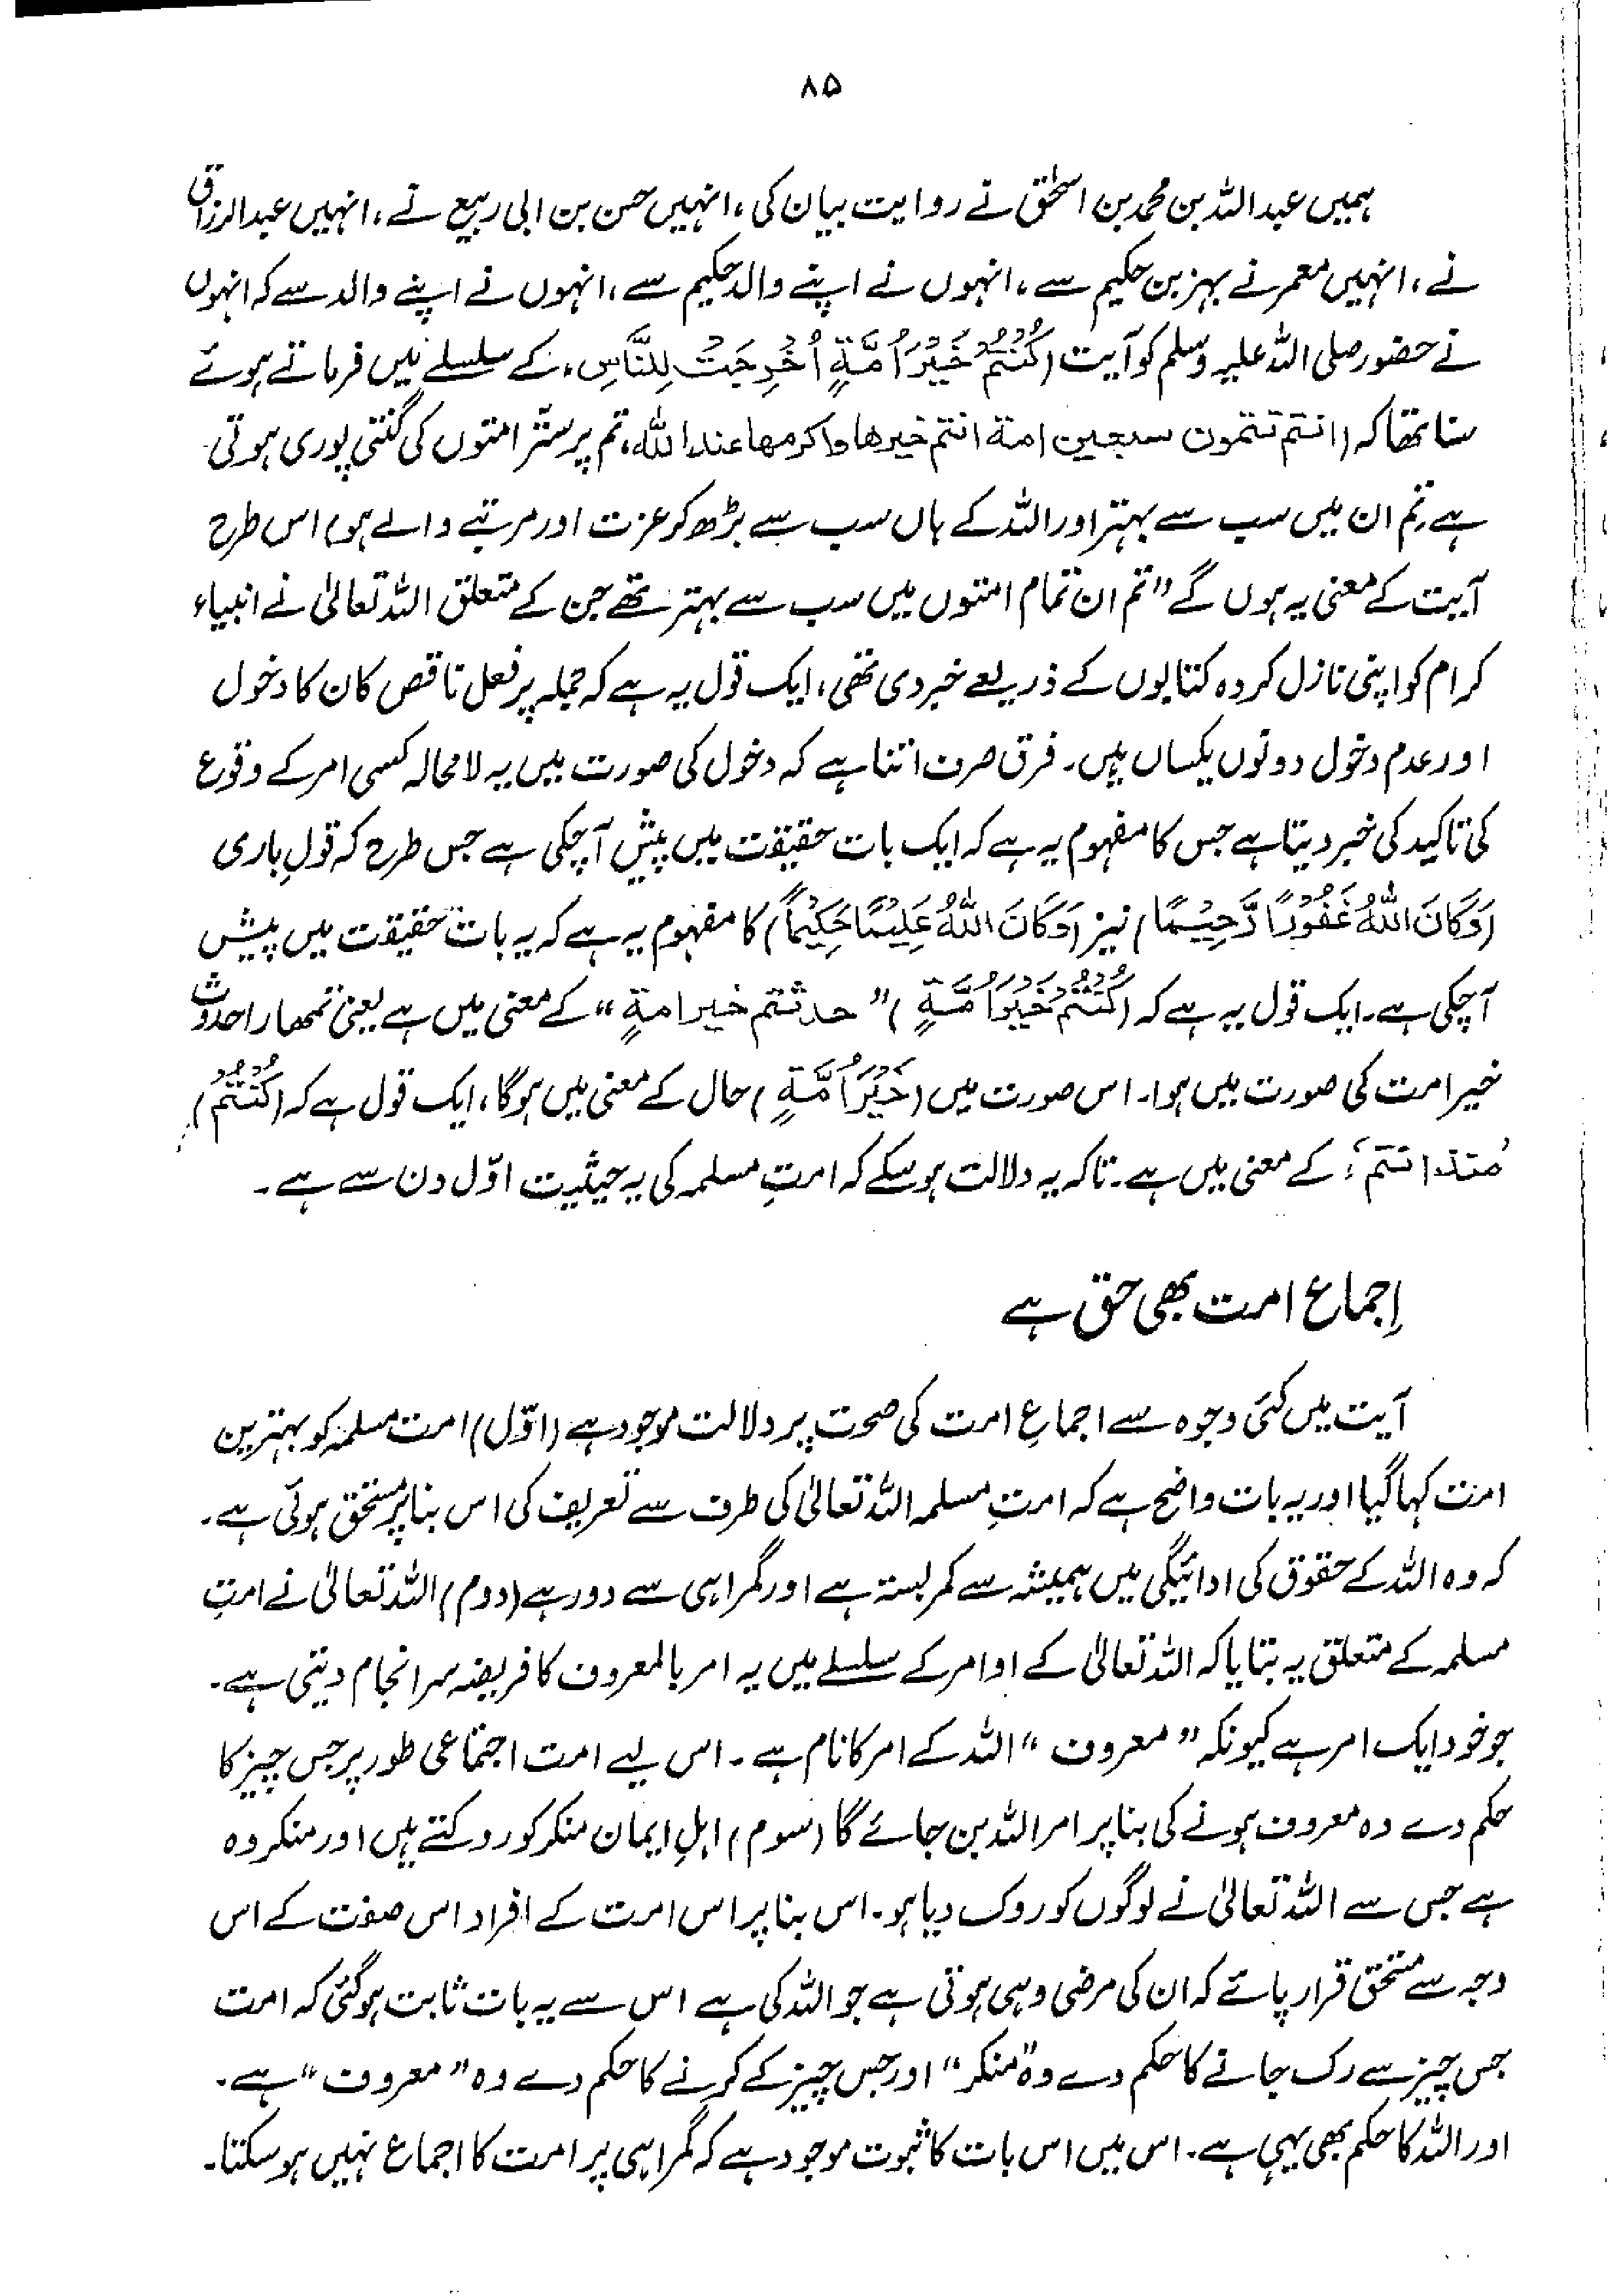 ۸۵
ہمیں عبداللہ بن محمد بن اسحٰق نے روایت بیان کی، انہیں حسن بن ابی ربیع نے، انہیں عبدالرزاق
نے، انہیں معمر نے بہز بن حکیم سے، انہوں نے اپنے والد حکیم سے، انہوں نے اپنے والد سے کہ انہوں
نے حضور صلی اللہ علیہ وسلم کو آیت (کُنْتُمْ خَیْرَ اُمَّۃٍ اُخْرِجَتْ لِلنَّاسِ، کے سلسلے میں فرماتے ہوئے
سنا تھا کہ (انتم تتمون سبعین امۃ انتم خیرھا واکرمھا عند اللہ، تم پر ستّر امتوں کی گنتی پوری ہوتی
ہے، تم ان میں سب سے بہتر اور اللہ کے ہاں سب سے بڑھ کر عزت اور مرتبے والے ہو) اس طرح
آیت کے معنی یہ ہوں گے ”تم ان تمام امتوں میں سب سے بہتر تھے جن کے متعلق اللہ تعالیٰ نے انبیاء
کرام کو اپنی نازل کردہ کتابوں کے ذریعے خبر دی تھی، ایک قول یہ ہے کہ جملہ پر فعل ناقص کان کا دخول
اور عدم دخول دونوں یکساں ہیں۔ فرق صرف اتنا ہے کہ دخول کی صورت میں یہ لامحالہ کسی امر کے وقوع
کی تاکید کی خبر دیتا ہے جس کا مفہوم یہ ہے کہ ایک بات حقیقت میں پیش آ چکی ہے جس طرح کہ قولِ باری
(وَکَانَ اللّٰہُ غَفُوْرًا رَّحِیْمًا) نیز (وَکَانَ اللّٰہُ عَلِیْمًا حَکِیْمًا) کا مفہوم یہ ہے کہ یہ بات حقیقت میں پیش
آ چکی ہے۔ ایک قول یہ ہے کہ (کُنْتُمْ خَیْرَ اُمَّۃٍ) ”حدثتم خیر امۃٍ“ کے معنی میں ہے یعنی تمھارا حدوث
خیر امت کی صورت میں ہوا۔ اس صورت میں (خَیْرَ اُمَّۃٍ) حال کے معنی میں ہوگا، ایک قول ہے کہ (کُنْتُمْ)
’منذ انتم‘ کے معنی میں ہے۔ تاکہ یہ دلالت ہو سکے کہ امتِ مسلمہ کی یہ حیثیت اوّل دن سے ہے۔
اِجماع امت بھی حق ہے
آیت میں کئی وجوہ سے اجماعِ امت کی صحت پر دلالت موجود ہے (اوّل) امت مسلمہ کو بہترین
امت کہا گیا اور یہ بات واضح ہے کہ امتِ مسلمہ اللہ تعالیٰ کی طرف سے تعریف کی اس بنا پر مستحق ہوئی ہے۔
کہ وہ اللہ کے حقوق کی ادائیگی میں ہمیشہ سے کمربستہ ہے اور گمراہی سے دور ہے (دوم) اللہ تعالیٰ نے امتِ
مسلمہ کے متعلق یہ بتایا کہ اللہ تعالیٰ کے اوامر کے سلسلے میں یہ امر بالمعروف کا فریضہ سرانجام دیتی ہے۔
جو خود ایک امر ہے کیونکہ ”معروف“ اللہ کے امر کا نام ہے۔ اس لیے امت اجتماعی طور پر جس چیز کا
حکم دے وہ معروف ہونے کی بنا پر امر اللہ بن جائے گا (سوم) اہلِ ایمان منکر کو روکتے ہیں اور منکر وہ
ہے جس سے اللہ تعالیٰ نے لوگوں کو روک دیا ہو۔ اس بنا پر اس امت کے افراد اس صفت کے اس
وجہ سے مستحق قرار پائے کہ ان کی مرضی وہی ہوتی ہے جو اللہ کی ہے اس سے یہ بات ثابت ہوگئی کہ امت
جس چیز سے رک جانے کا حکم دے وہ ”منکر“ اور جس چیز کے کرنے کا حکم دے وہ ”معروف“ ہے۔
اور اللہ کا حکم بھی یہی ہے۔ اس میں اس بات کا ثبوت موجود ہے کہ گمراہی پر امت کا اجماع نہیں ہو سکتا۔